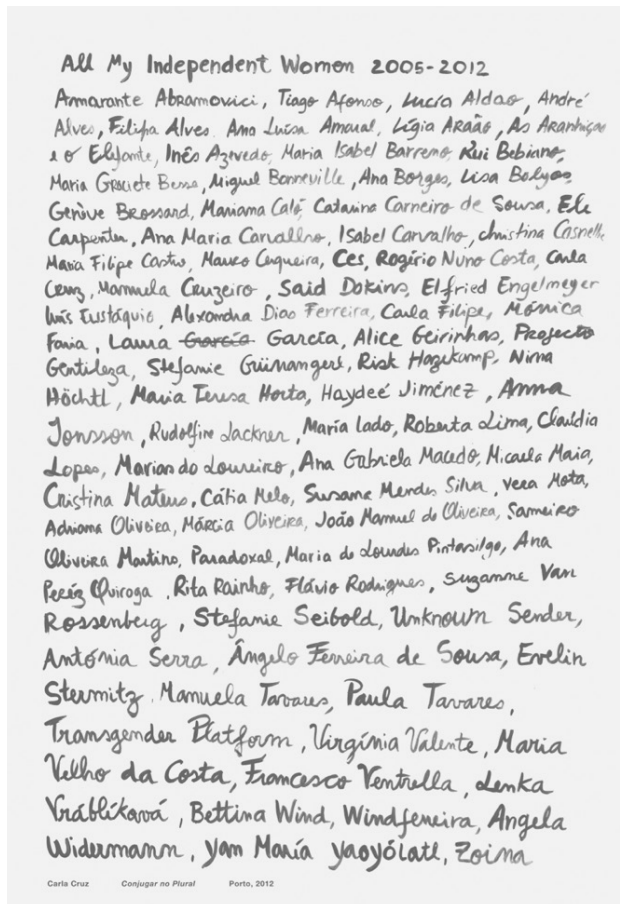 All My Independent Women 2005-2012
Amarante Abramovici, Tiago Afonso, Lucía Aldao, André
Alves, Filipa Alves. Ana Luísa Amaral, Lígia Araão, As Aranhiças
e o Elefante, Inês Azevedo, Maria Isabel Barreno, Rui Bebiano,
Maria Graciete Besse, Miguel Bonneville, Ana Borges, Lisa Bolyos
Genève Brossard, Mariana Caló, Catarina Carneiro de Sousa, Ele
Carpenter, Ana Maria Carvalho, Isabel Carvalho, Christina Casnellie
Maria Filipe Castro, Mauro Cerqueira, Ces, Rogério Nuno Costa, Carla
Cruz, Manuela Cruzeiro, Said Dokins, Elfried Engelmeyer
Inês Eustáquio, Alexandra Dias Ferreira, Carla Filipe, Mónica
Faria, Laura García García, Alice Geirinhas, Projecto
Gentileza, Stefanie Grünangerl, Risk Hazekamp, Nina
Höchtl, Maria Teresa Horta, Haydeé Jiménez, Anna
Jonsson, Rudolfine Lackner, María Lado, Roberta Lima, Claudia
Lopes, Mariando Loureiro, Ana Gabriela Macedo, Micaela Maia,
Cristina Mateus, Cátia Melo, Susana Mendes Silva, Vera Mota,
Adriana Oliveira, Márcia Oliveira, João Manuel de Oliveira, Sameiro
Oliveira Martins, Paradoxal, Maria de Lourdes Pintasilgo, Ana
Peréz Quiroga, Rita Rainho, Flávio Rodrigues, Suzanne Van
Rossenberg, Stefanie Seibold, Unknown Sender,
Antónia Serra, Ângelo Ferreira de Sousa, Evelin
Stermitz. Manuela Tavares, Paula Tavares,
Transgender Platform, Virgínia Valente, Maria
Velho da Costa, Francesco Ventrella, Lenka
Vráblíková, Bettina Wind, Windferreira, Angela
Widermann, Yan María Yaoyólatl, Zoina
Carla Cruz Conjugar no Plural Porto, 2012